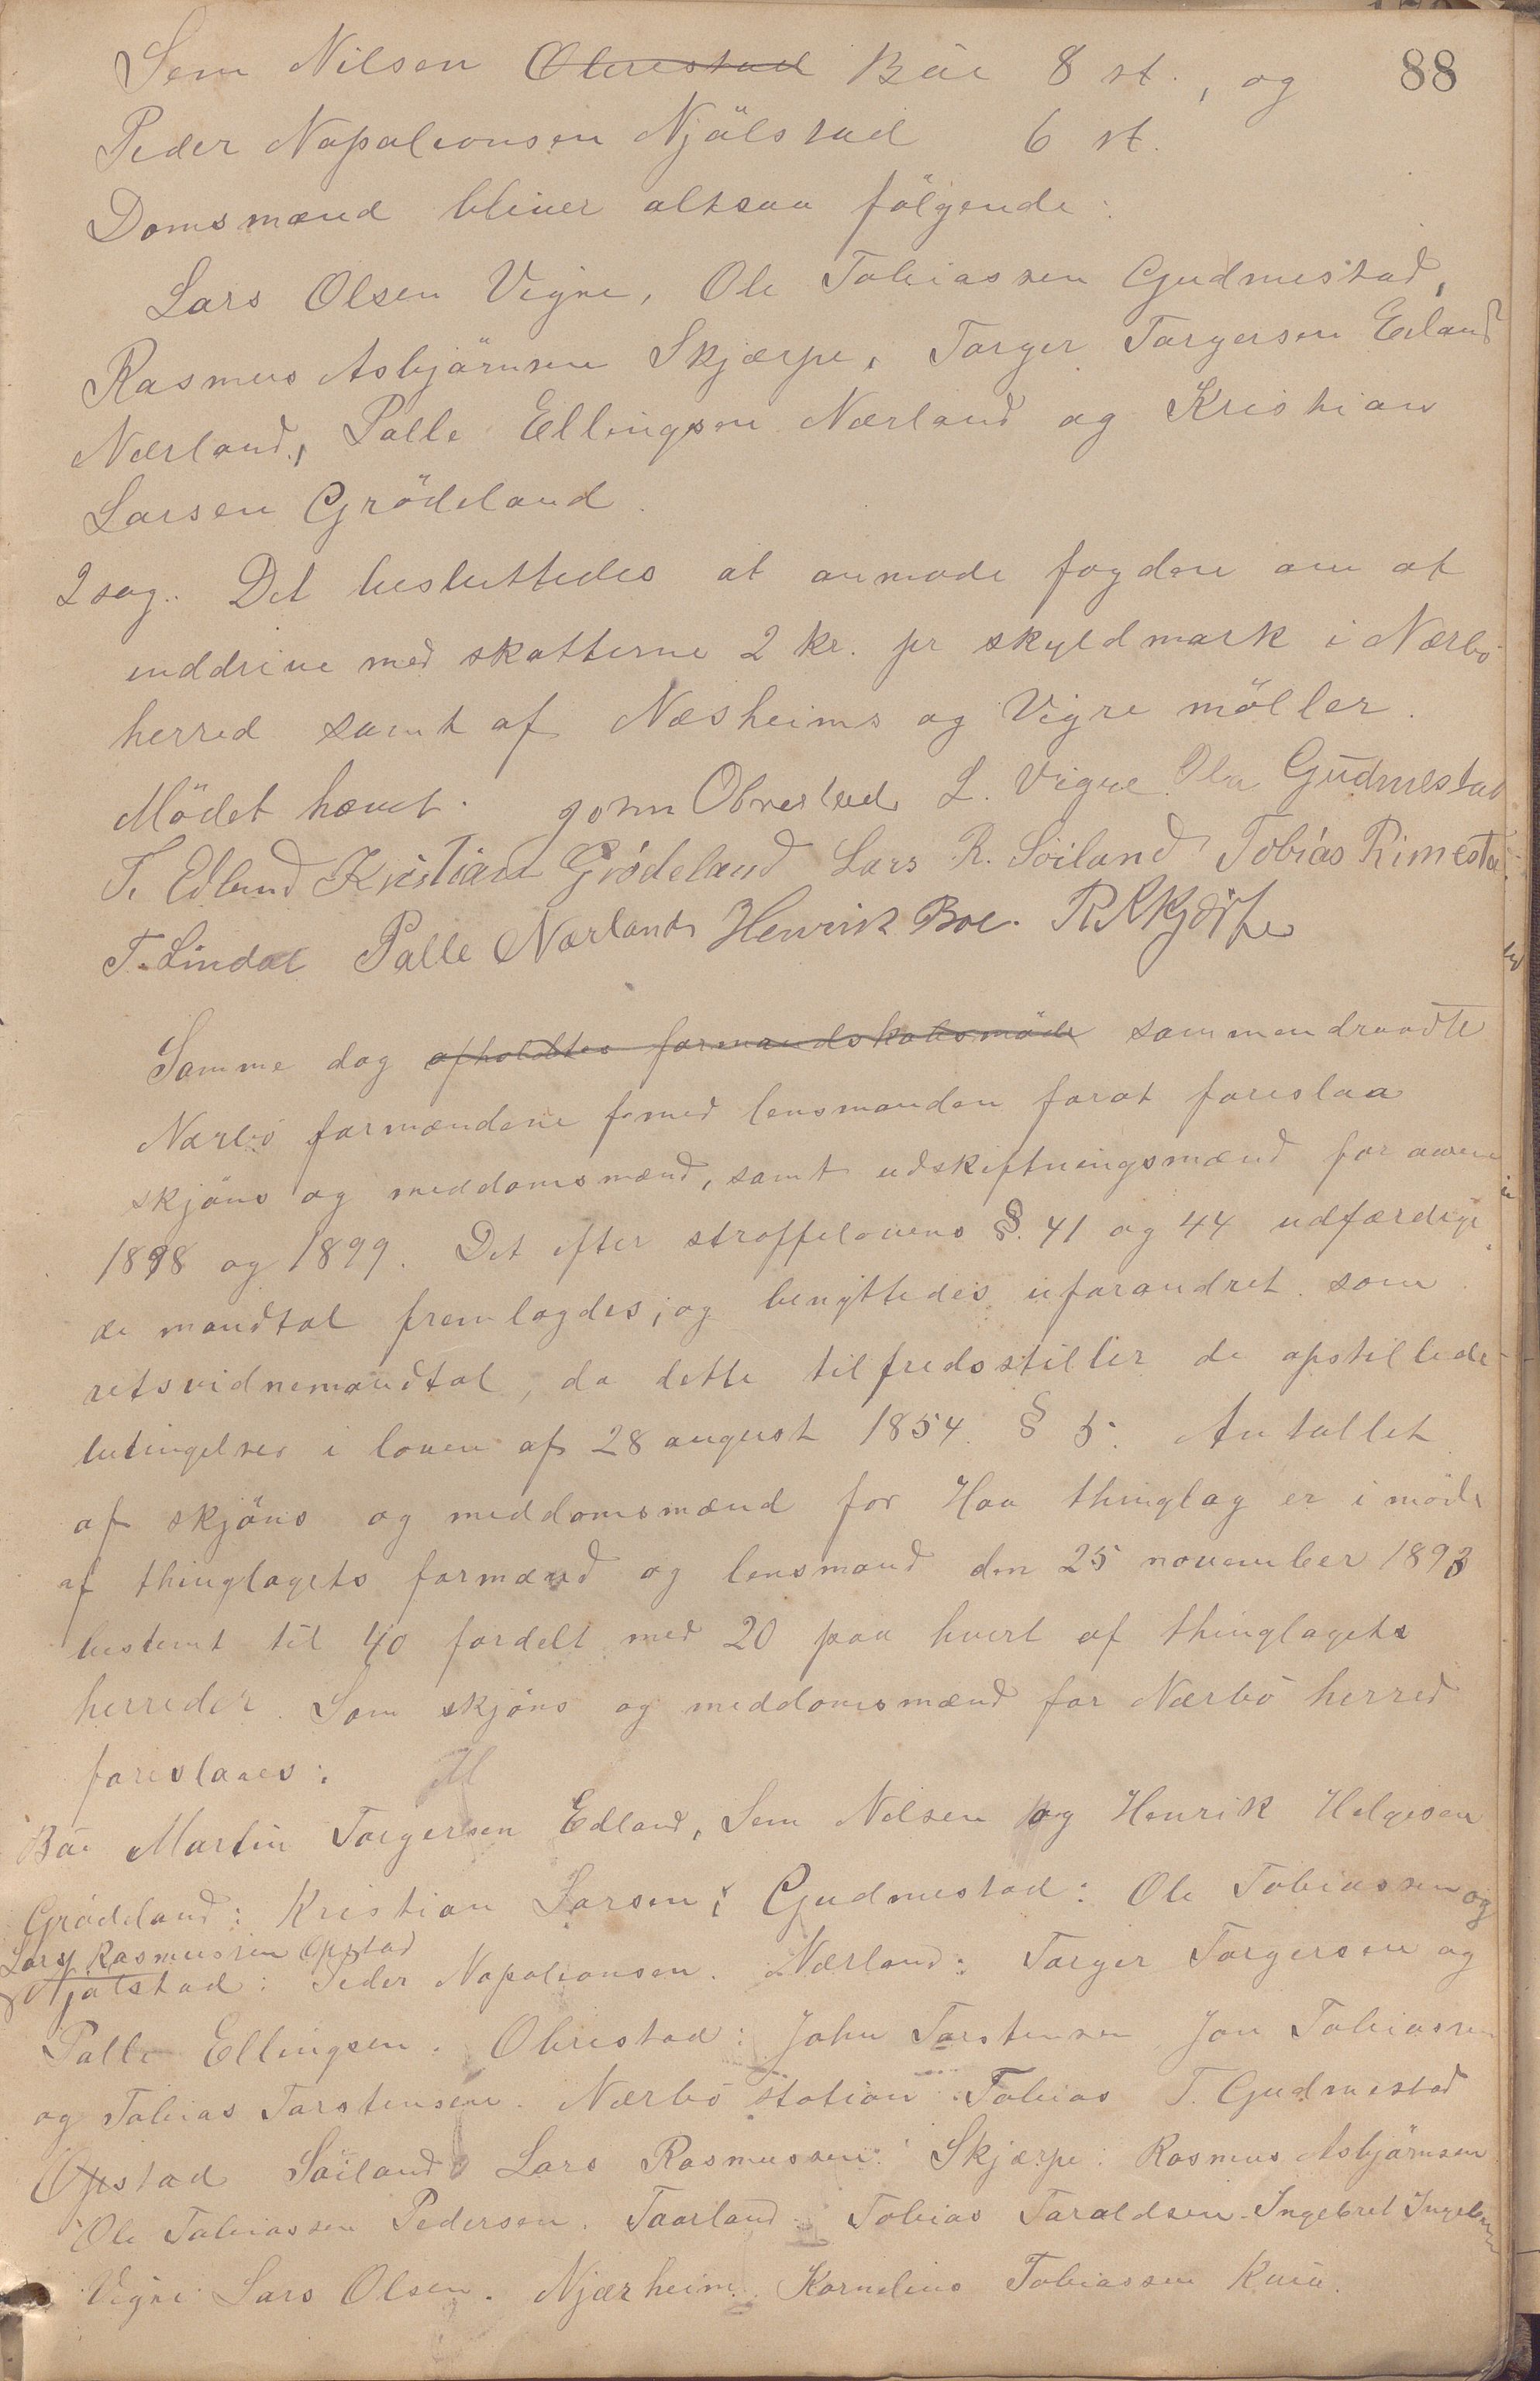 88
Sem Nilsen Obrestad Bøe 8 st., og
Peder Napoleonsen Njålstad 6 st.
Domsmænd bliver altsaa følgende:
Lars Olsen Vigre, Ole Tobiassen Gudmestad,
Rasmus Asbjörnsen Skjærpe, Torger Torgersen Edland
Nærland, Palle Ellingsen Nærland og Kristian
Larsen Grödeland.
2 sag. Det besluttedes at anmode fogden om at
inddrive med skatterne 2 kr. pr skyldmark i Nærbö
herred samt af Næsheims og Vigre möller.
Mödet hævet. John Obrestad L. Vigre Ole Gudmestad
T. Edland Kristian Grödeland Lars R. Söiland Tobias Rimesta
T. Lindal Palle Nærland Henrik Boe. R Skjærpe
Samme dag afholdtes formandskabsmöde sammendraadte
Nærbö formændene med lensmanden forat foreslaa
skjöns og meddomsmænd, samt udskiftningsmænd for aaren
1898 og 1899. Det efter straffelovens §. 41 og 44 udfærdige
de mandtal fremlagdes; og benyttedes uforandret som
retsvidnemandtal, da dette tilfredsstiller de opstillede
betingelser i loven af 28 august 1854. § 5. Antallet
af skjöns og meddomsmænd for Haa thinglag er i möde
af thinglagets formænd og lensmand den 25 november 1893
bestemt til 40 fordelt med 20 paa hvert af thinglagets
herreder. Som skjöns og meddomsmænd for Nærbö herred
foreslaaes:
Böe Martin Torgersen Edland, Sem Nilsen og Henrik Helgesen
Grödeland: Kristian Larsen; Gudmestad: Ole Tobiassen og
Lars Rasmussen Opstad
Njålstad: Peder Napoleonsen. Nærland: Torger Torgersen og
Palle Ellingsen. Obrestad: John Torstensen Jon Tobiassen
og Tobias Torstensen. Nærbö station Tobias T. Gudmestad
Opstad Söiland Lars Rasmussen. Skjærpe: Rasmus Asbjörnsen
Ole Tobiassen Pedersen. Taarland: Tobias Taraldsen. Ingebret Ingebre
Vigre Lars Olsen. Njærheim. Kornelius Tobiassen Kvia.